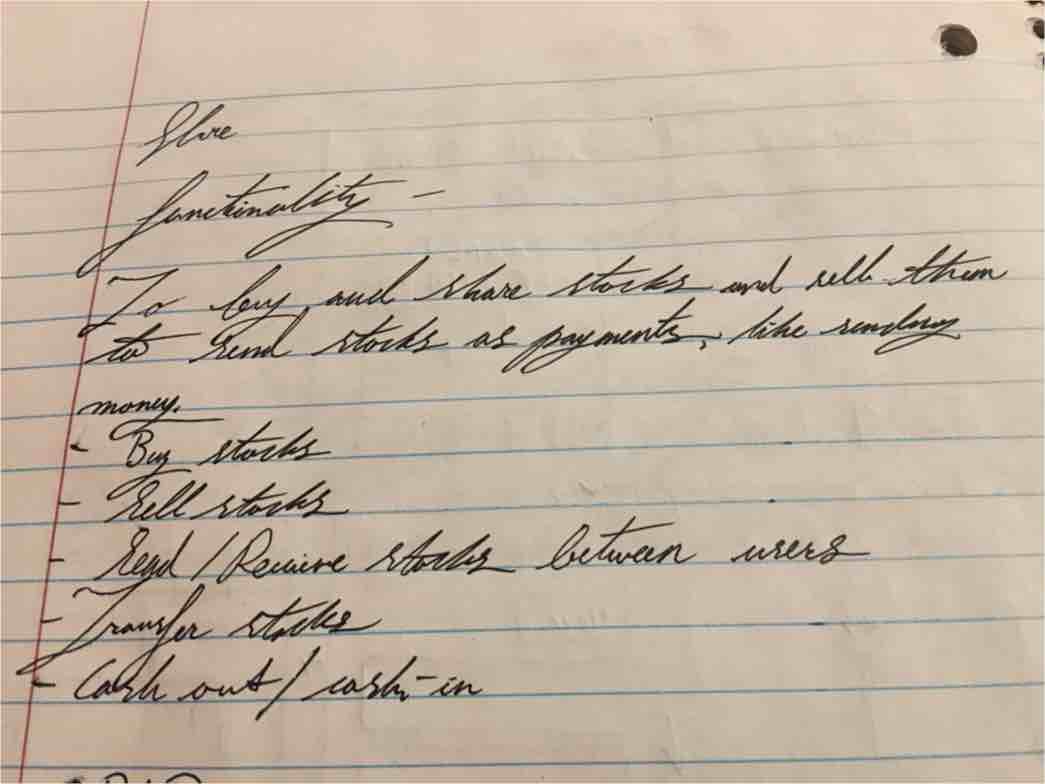 functinality -
To buy and share stocks and sell them
to send stocks as payments, like sending
money.
- Buy stocks
- Sell stocks
- Send / Recieve stocks between users
- Transfer stocks
- Cash out / cash-in